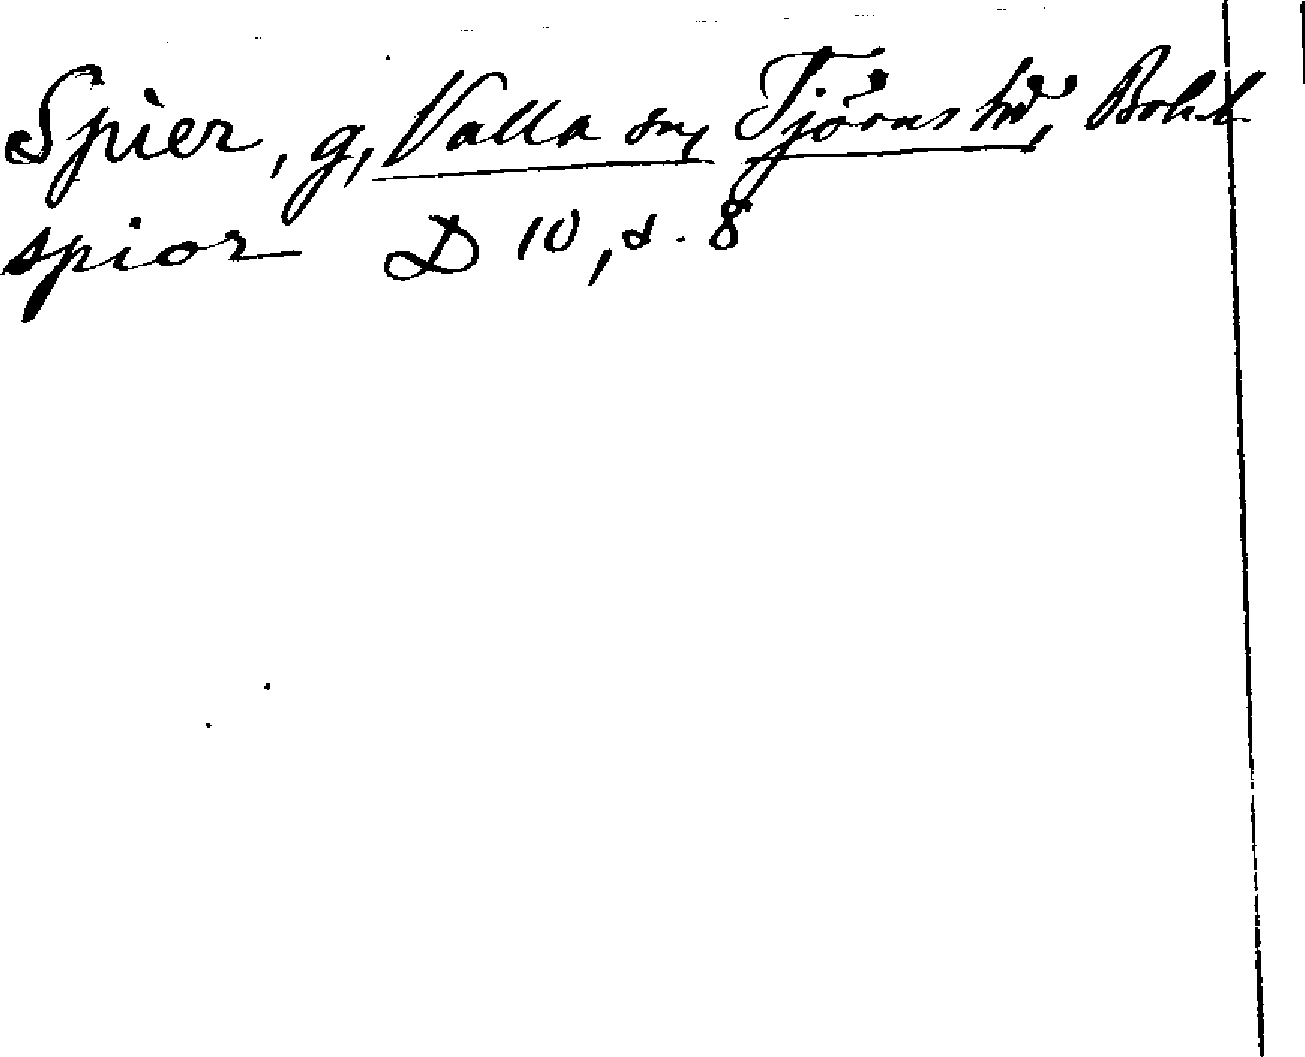 Spier, g, Valla sn, Tjörns hd, Bohl
spior D 10, s. 8